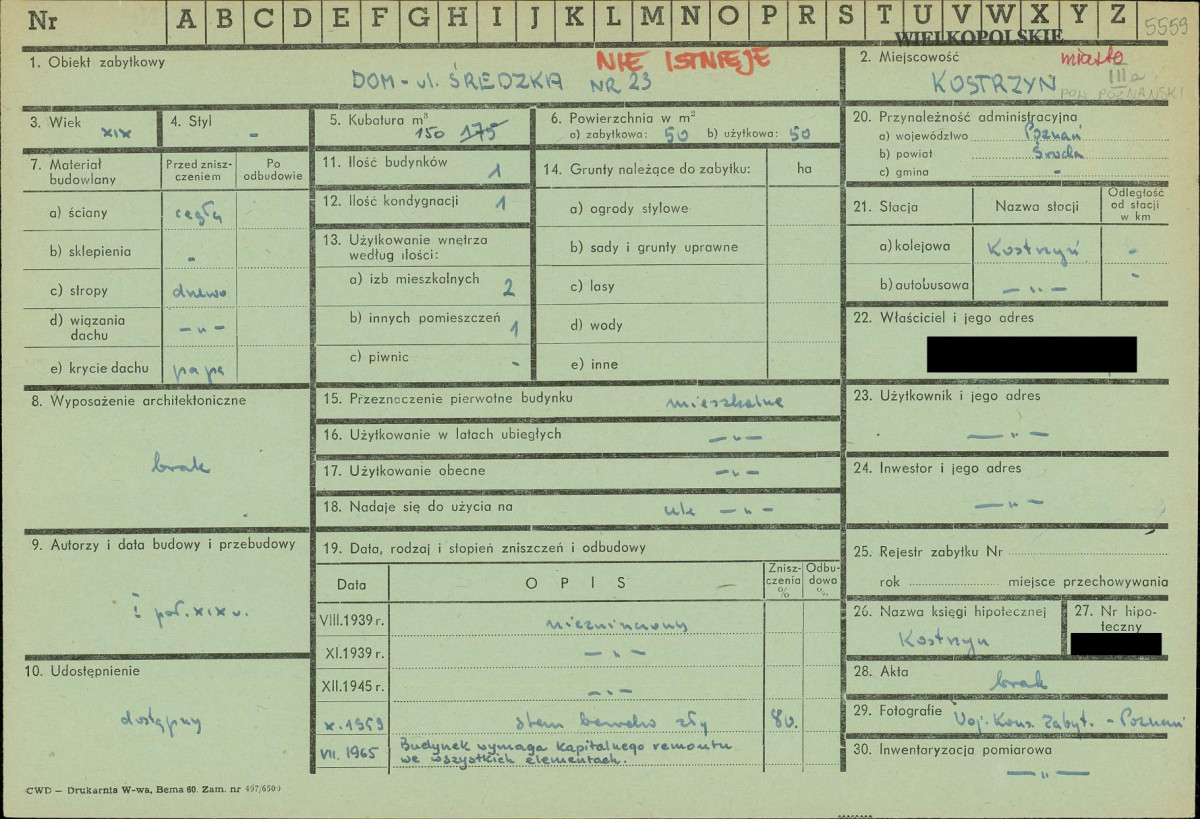 Nr A B C D E F G H I J K L M N O P R S T U V W X Y Z 5559
WIELKOPOLSKIE
1. Obiekt zabytkowy
NIE ISTNIEJE
DOM - ul. ŚREDZKA NR 23
2. Miejscowość
miasto
III a
KOSTRZYN
POW. POZNAŃSKI
3. Wiek XIX
4. Styl -
5. Kubatura m³
150 175
6. Powierzchnia w m²
a) zabytkowa: 50 b) użytkowa: 50
7. Materiał budowlany
Przed zniszczeniem
Po odbudowie
a) ściany cegła
b) sklepienia -
c) stropy drewo
d) wiązania dachu -"-
e) krycie dachu papa
8. Wyposażenie architektoniczne
brak
9. Autorzy i data budowy i przebudowy
I poł. XIX w.
10. Udostępnienie
dostępny
11. Ilość budynków 1
12. Ilość kondygnacji 1
13. Użytkowanie wnętrza według ilości:
a) izb mieszkalnych 2
b) innych pomieszczeń 1
c) piwnic -
14. Grunty należące do zabytku: ha
a) ogrody stylowe
b) sady i grunty uprawne
c) lasy
d) wody
e) inne
15. Przeznaczenie pierwotne budynku mieszkalne
16. Użytkowanie w latach ubiegłych -"-
17. Użytkowanie obecne -"-
18. Nadaje się do użycia na -"-
19. Data, rodzaj i stopień zniszczeń i odbudowy
Data
OPIS
Zniszczenia %
Odbudowa %
VIII.1939 r. niezniszczony
XI.1939 r. -"-
XII.1945 r. -"-
X.1959 stan bardzo zły 80.
VII. 1965 Budynek wymaga kapitalnego remontu
we wszystkich elementach.
20. Przynależność administracyjna
a) województwo Poznań
b) powiat Środa
c) gmina -
21. Stacja
Nazwa stacji
Odległość od stacji w km
a) kolejowa Kostrzyń -
b) autobusowa -"- -
22. Właściciel i jego adres
23. Użytkownik i jego adres
-"-
24. Inwestor i jego adres
-"-
25. Rejestr zabytku Nr
rok miejsce przechowywania
26. Nazwa księgi hipotecznej
Kostrzyn
27. Nr hipoteczny
28. Akta
brak
29. Fotografie Woj. Kons. Zabyt. - Poznań
30. Inwentaryzacja pomiarowa
-"-
CWD — Drukarnia W-wa, Bema 60. Zam. nr 497/650